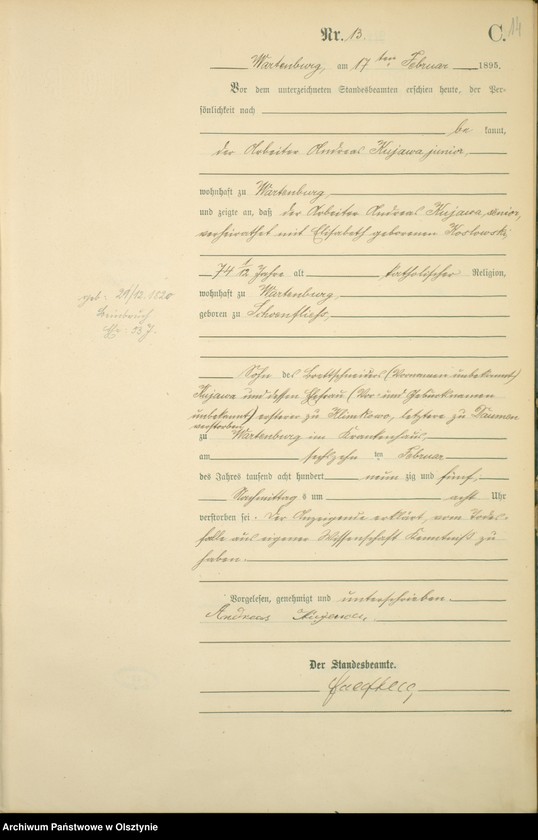 14
Nr. 13. C.
Wartenburg, am 17 ten Februar 1895.
Vor dem unterzeichneten Standesbeamten erschien heute, der Per-
sönlichkeit nach
be kannt,
der Arbeiter Andreas Kujawa junior,
wohnhaft zu Wartenburg
und zeigte an, daß der Arbeiter Andreas Kujawa, senior,
verheirathet mit Elisabeth geborenen Koslowski,
74 1/12 Jahre alt katholischer Religion,
wohnhaft zu Wartenburg,
geboren zu Schoenfliess,
geb: 1820
Beinbruch
Sohn des Brettschneiders (Vornamen unbekannt)
Kujawa und dessen Ehefrau (Vor- und Geburtsnamen
unbekannt) ersterer zu Klimkowo, letztere zu Daumen
verstorben
zu Wartenburg im Krankenhaus,
am sechszehn ten Februar
des Jahres tausend acht hundert neun zig und fünf,
Nachmittags um acht Uhr
verstorben sei. Der Anzeigende erklärt, vom Todes-
falle aus eigener Wissenschaft Kenntniß zu
haben.
Vorgelesen, genehmigt und unterschrieben
Andreas Kujawa,
Der Standesbeamte.
Archiwum Państwowe w Olsztynie